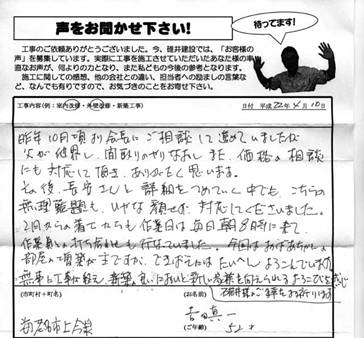 声をお聞かせ下さい!
待ってます!
工事のご依頼ありがとうございました。今、碓井建設では、「お客様の
声」を募集しています。実際に工事を施工させていただいたあなた様の率
直なお声が、何よりの力となり、また私どもの今後の参考となります。
施工に関しての感想、他の会社との違い、担当者への励ましの言葉な
ど、なんでも有りですので、お気づきのことをお寄せ下さい。
工事内容(例:室内改修・外壁改修・新築工事)
日付 平成22年4月10日
昨年10月頃より会長にご相談して進めていましたが
父が他界し、間取りのやりなおし また、価格の相談
にも対応して頂き、ありがたく思います。
その後、 さんと詳細をつめていく中でも、こちらの
無理難題も、いやな顔せず、対応してくださいました。
2月からの着工たちも作業日は毎日朝8時に来て、
作業員との打ち合わせも行なっていました。今回はおばあちゃんの
部屋の増築がまですが、できばえにはたいへんよろこんでいます。
無事に工事が終え、新築の良いにおいと新しい 様を迎えられるよろこびを感じ
(市町村+町名)
(お名前)
(ご年齢)
海老名市上今泉
吉田真一
52才